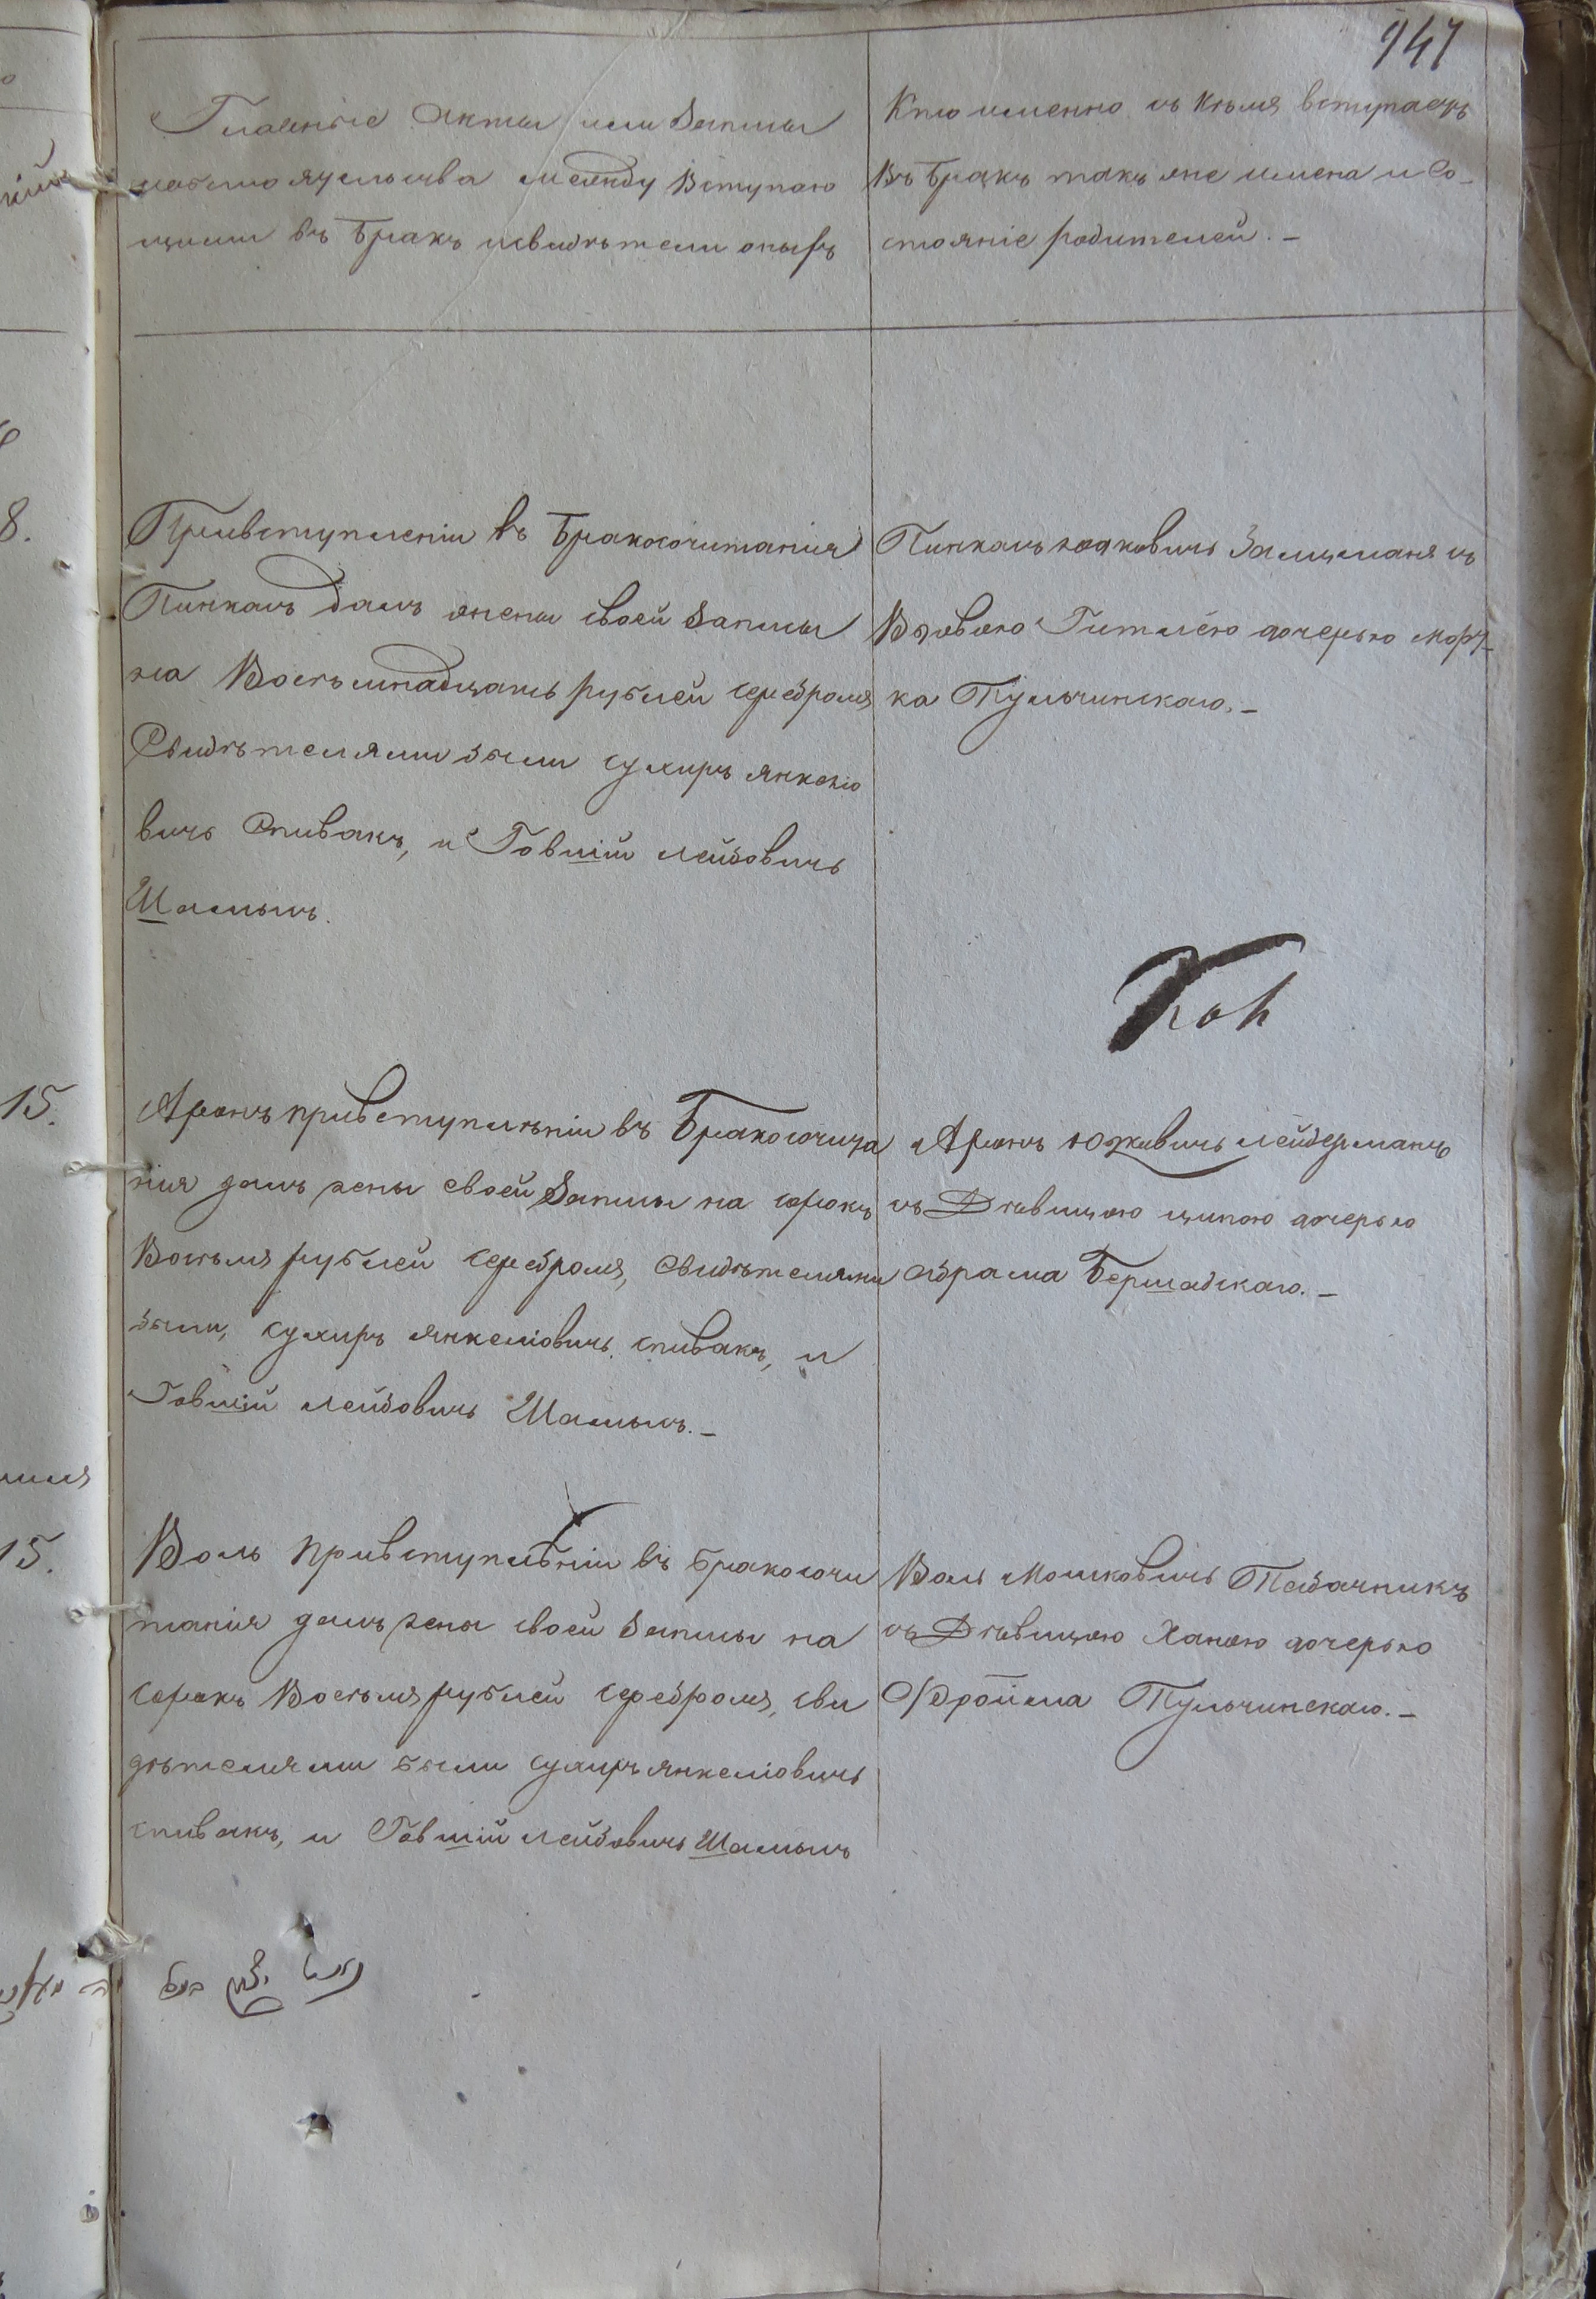 947
Главные Акты или Записи
обстоятельства между Вступаю
щими въ Бракъ и свидѣтели оныхъ
Кто именно съ кѣмъ вступаетъ
въ Бракъ такъ же имена и Со-
стояніе родителей. -
8.
Привступленіи въ Бракосочитанія
Пинхасъ далъ жены своей Записы
на Восѣмнадцать рублей серебромъ
Свидѣтелями были сухиръ янкеліо
вичъ Спивакъ, и Говшій лейбовичъ
Шамысъ.
Пинхасъ юдковичъ Залцманъ съ
Вдовою Гитлею дочерьюМорд-
ка Тульчинскаго. -
15.
Аронъ привступлѣніи въ Бракосочита
нія далъ жены своей Записы на сорокъ
Восѣмъ рублей серебромъ, Свидѣтелями
были, сухиръ янкеліовичъ спивакъ, и
Говшій лейбовичъ Шамысъ. -
Аронъ юдковичъ лейдерманъ
съ Дѣвицою ципою дочерью
абрама Бершадскаго. -
15.
Воль привступлѣніи въ Бракосочи
танія далъ жены своей Записы на
сорокъ Восѣмъ рублей серебромъ, сви
дѣтелями были сухиръ янкеліовичъ
спивакъ, и Говшій лейбовичъ Шамысъ
Воль Мошковичъ Табачникъ
съ Дѣвицою Ханою дочерью
Фройма Тульчинскаго. -